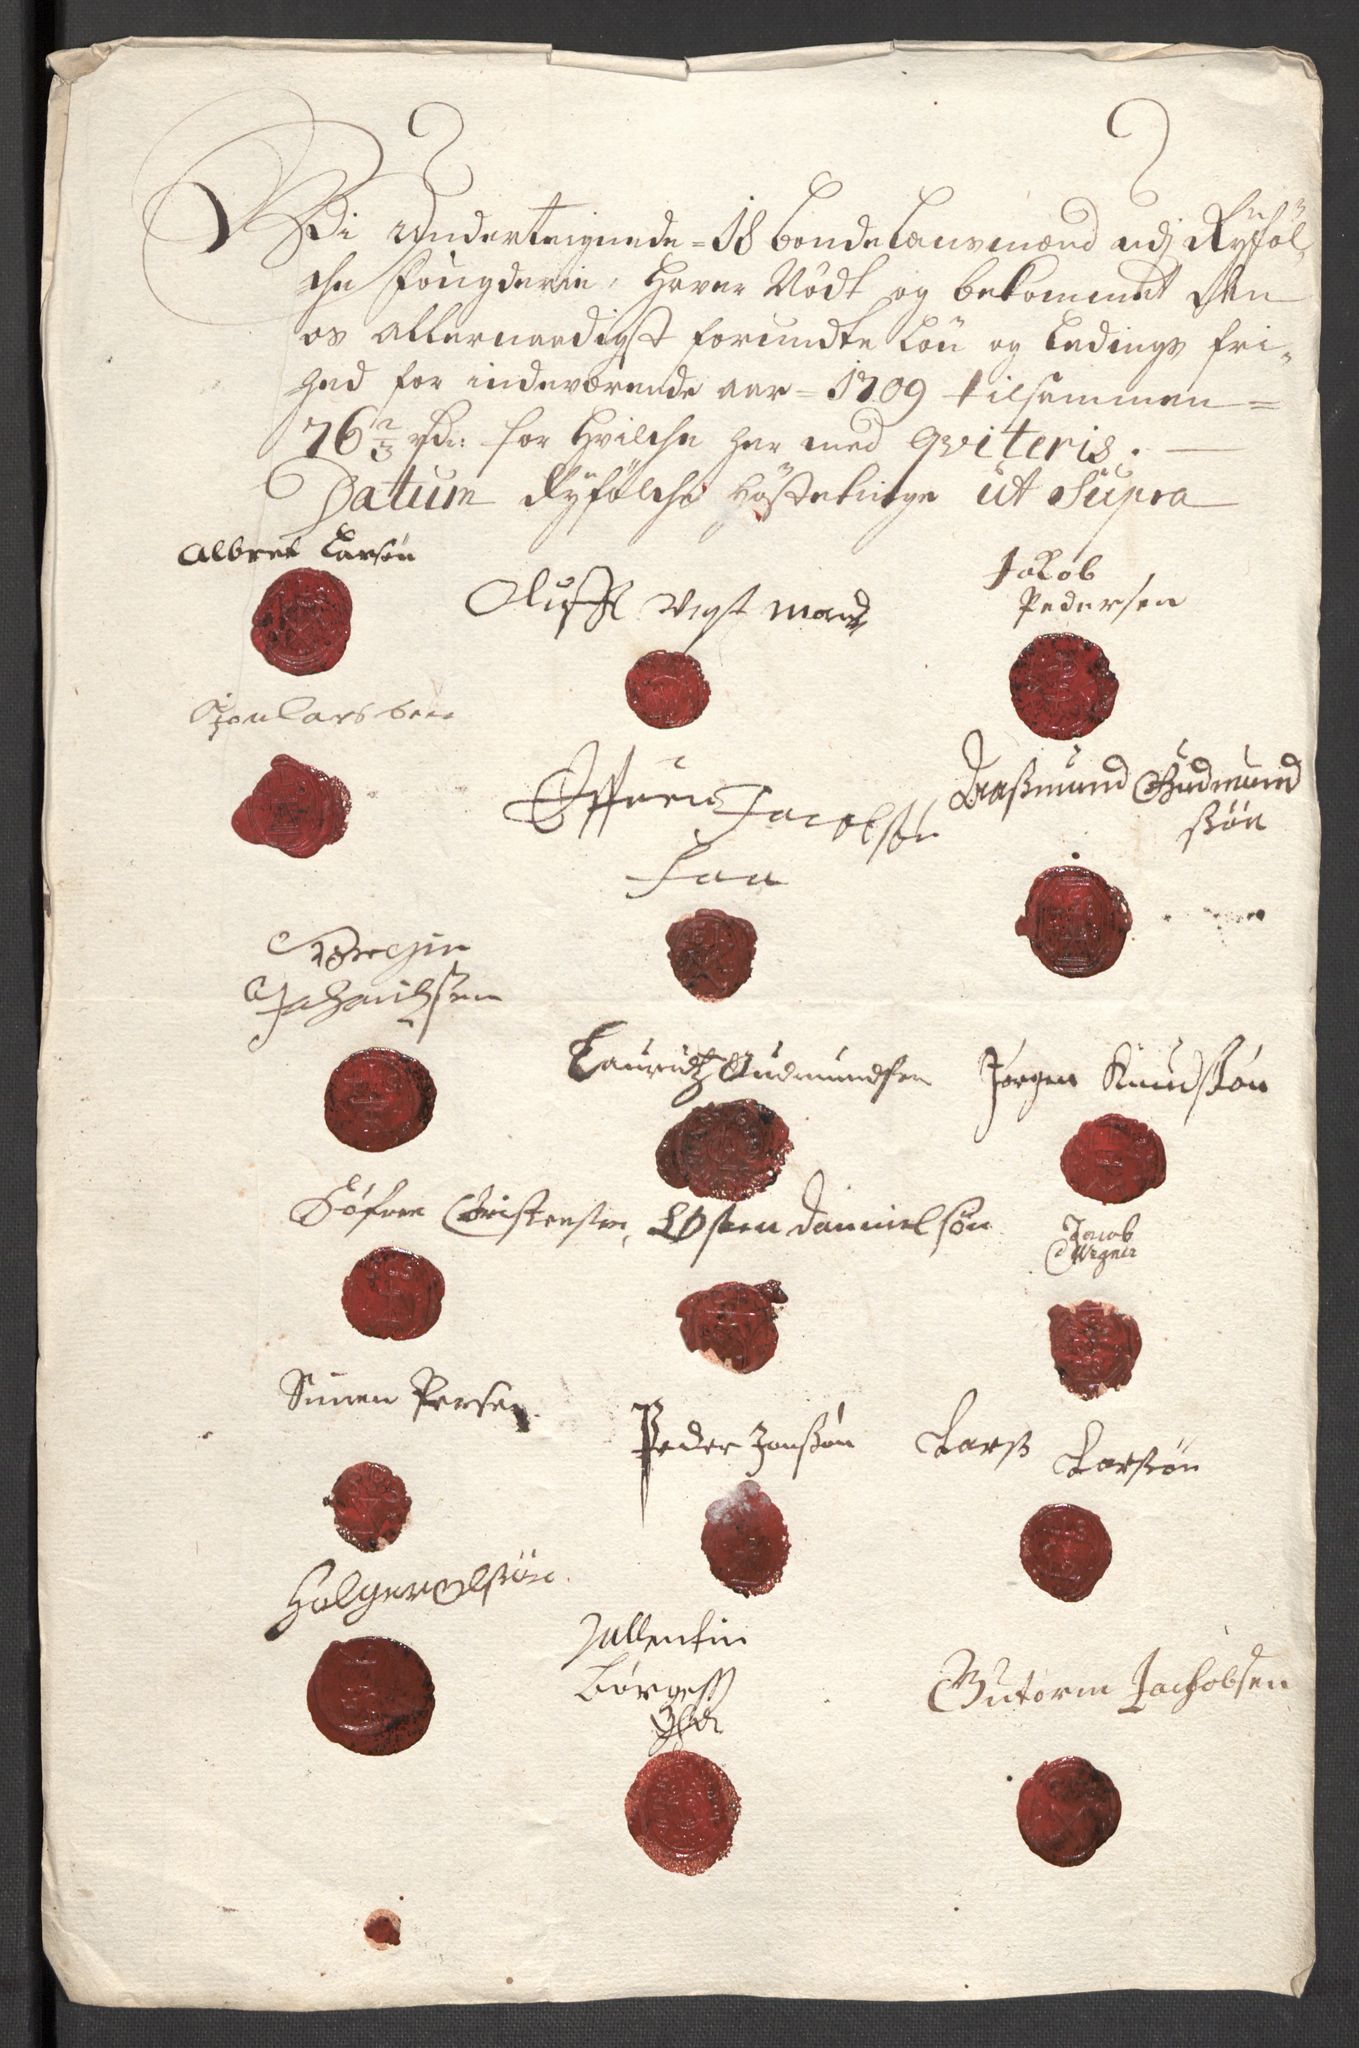 Wi Underteignede = 18 bonde Lænsmænd udj Ryføl-
che fougderie, Hafver Nødt og bekommet den
os Allernaadigst forundte Løn og Ledings fri-
hed for indeværende aar = 1709 tilsammen =
76 2/3 rd: for hvilche her med qviteris. —
Datum Ryfølche Høstetinge ut Supra
Albret Larsøn
Oluff Vegstmand
Jakob
Pedersen
Jacobsøn
Raßmund Gudmund
ßøn
Lauridtz Gudmundsen
Jørgen Knudßøn
Søfren Christensen,
Østen Danniel søn
Jacob
Simen Persen
Peder Jonßøn
Larß
Larßøn
Holger Olßøn
Vallentin
Børgeß
Gutorm Jachobsen